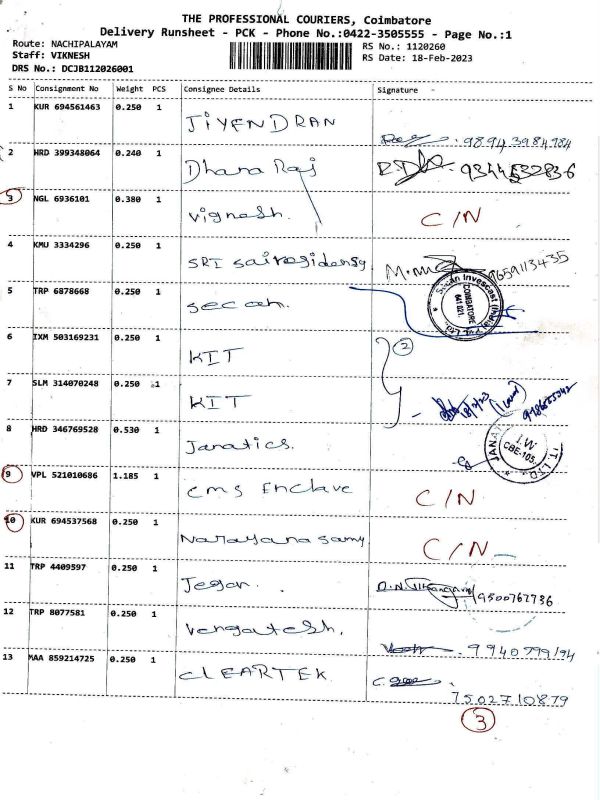 THE PROFESSIONAL COURIERS, Coimbatore
Delivery Runsheet - PCK - Phone No.:0422-3505555 - Page No.:1
Route: NACHIPALAYAM RS No.: 1120260
Staff: VIKNESH RS Date: 18-Feb-2023
DRS No.: DCJB112026001
S No Consignment No Weight PCS Consignee Details Signature -
1 KUR 694561463 0.250 1 JIYENDRAN
98943984784
2 HRD 399348064 0.240 1 Dhana Raj 9344532836
3 NGL 6936101 0.380 1 vignesh. C/N
4 KMU 3334296 0.250 1 SRI sairesidensy 9659113435
5 TRP 6878668 0.250 1 secan.
COIMBATORE 641 021
6 IXM 503169231 0.250 1 KIT 2
7 SLM 314070248 0.250 1 KIT
8 HRD 346769528 0.530 1 Janatics.
I.W CBE-105.
9 VPL 521010686 1.185 1 cms Enclave C/N
10 KUR 694537568 0.250 1 Narayana samy C/N
11 TRP 4409597 0.250 1 Jegan. 9500767736
12 TRP 8077581 0.250 1 vengatesh.
9940799194
13 MAA 859214725 0.250 1 CLEARTEK
7502710879
3